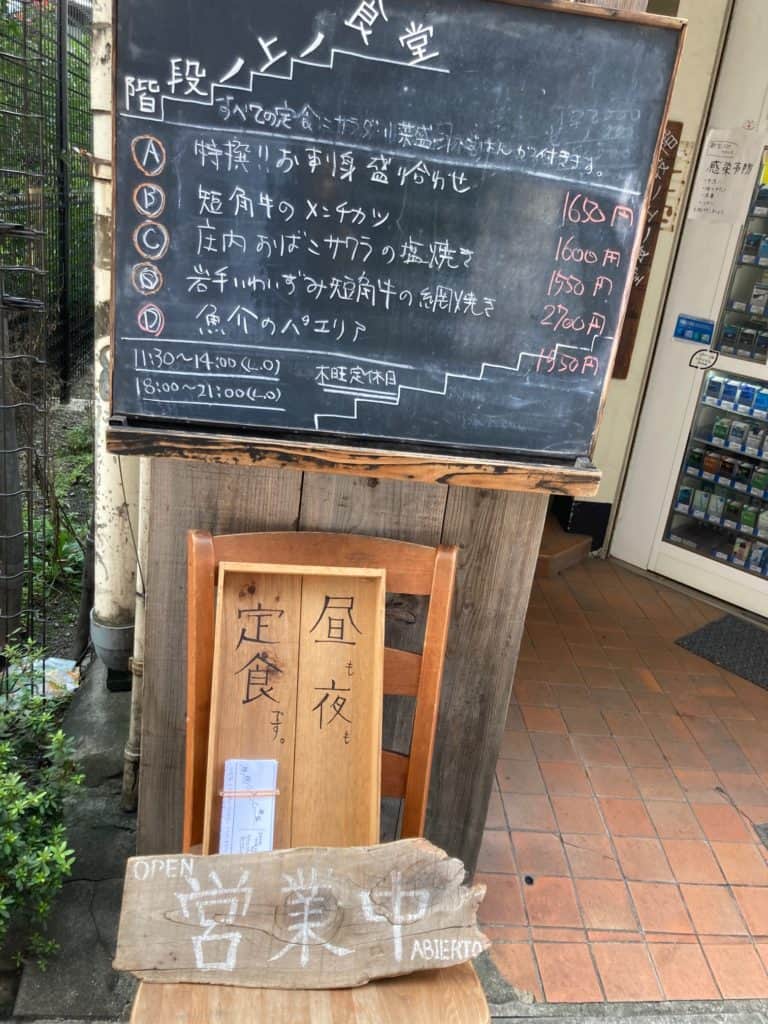 階段ノ上ノ食堂
すべての定食ニサラダ、小菜盛り、ごはんが付きます。
A 特撰!! お刺身盛り合わせ 1650円
B 短角牛のメンチカツ 1600円
C 庄内おばこサワラの塩焼き 1550円
S 岩手いわいずみ短角牛の網焼き 2700円
D 魚介のパエリア 1950円
11:30〜14:00(L.O)
18:00〜21:00(L.O)
木曜定休日
昼も夜も
定食です。
OPEN
営業中
ABIERTO
感染予防